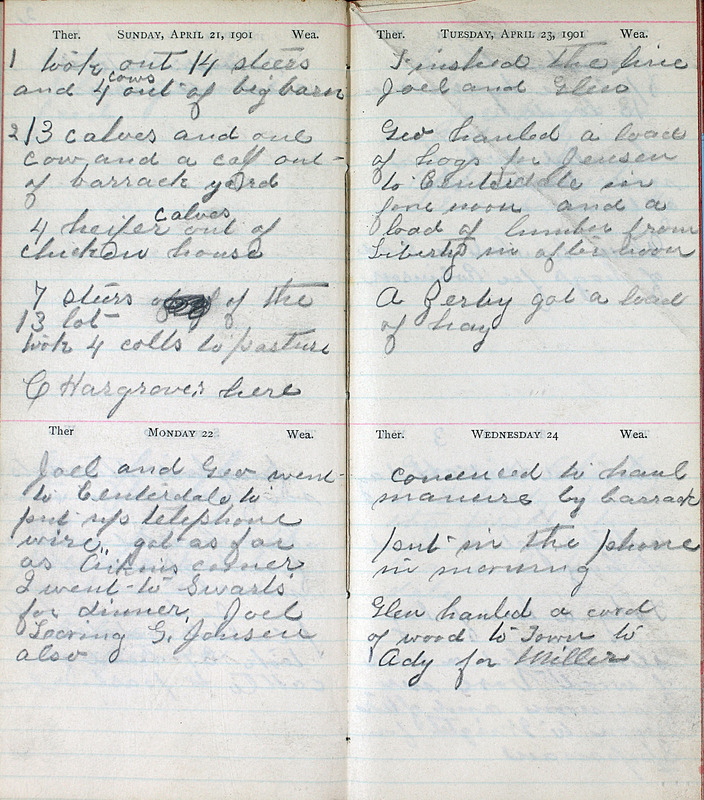 Ther. SUNDAY, APRIL 21, 1901 Wea.
1 took out 14 steers
and 4 cows out of big barn
2 13 calves and one
cow and a calf out
of barrack yard
4 heifer calves out of
chicken house
7 steers of the
13 lot
took 4 colts to pasture
C Hargroves here
Ther MONDAY 22 Wea.
Joel and Geo went
to Centerdale to
put up telephone
wire, got as far
as Aikins corner
I went to Swarts
for dinner, Joel
G. Jensen
also
Ther. TUESDAY, APRIL 23, 1901 Wea.
Finished the line
Joel and Glen
Geo hauled a load
of hogs for Jensen
to Centerdale in
fore noon and a
load of lumber from
Liberty in after noon
A Zerby got a load
of hay
Ther. WEDNESDAY 24 Wea.
comenced to haul
manure by barrack
put in the phone
in morning
Glen hauled a cord
of wood to Town to
Ady for Miller